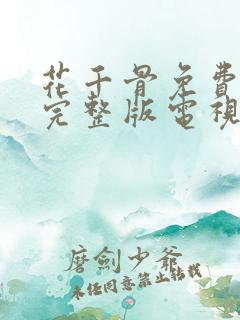 花千骨免費
完整版電視
磨劍少爺
未經同意禁止轉載